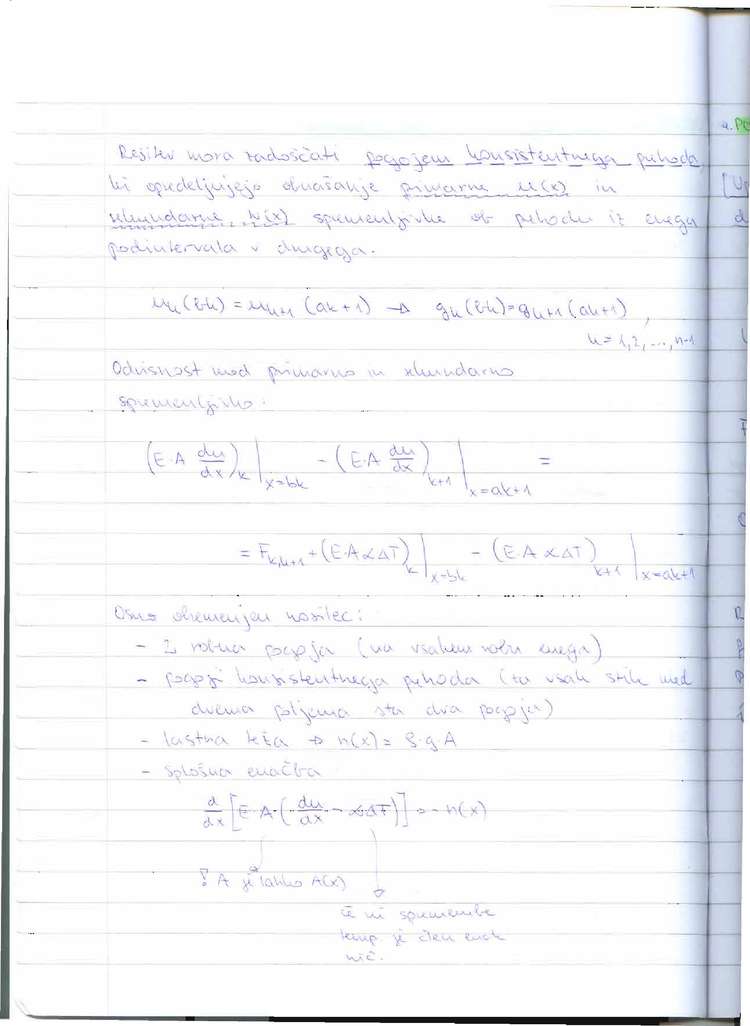 Rešitev mora zadoščati pogojem konsistentnega prehoda,
ki opredeljujejo obnašanje primarne u(x) in
sekundarne N(x) spremenljivke ob prehodu iz enega
podintervala v drugega.
u_k(bk) = u_k+1 (ak+1) → g_k(bk) = g_k+1 (ak+1),
k = 1, 2, ..., n-1
Odvisnost med primarno in sekundarno
spremenljivko:
(E·A du/dx)_k |x=bk - (E·A du/dx)_k+1 |x=ak+1 =
= F_k,k+1 + (E·A α ΔT)_k |x=bk - (E·A α ΔT)_k+1 |x=ak+1
Osno obremenjen nosilec:
- 2 robna pogoja (na vsakem robu enega)
- pogoji konsistentnega prehoda (za vsak stik med
dvema poljema sta dva pogoja)
- lastna teža → n(x) = ρ·g·A
- splošna enačba
d/dx [E·A·(du/dx - αΔT)] = -n(x)
! A je lahko A(x)
če ni spremembe
temp. je člen enak
nič.